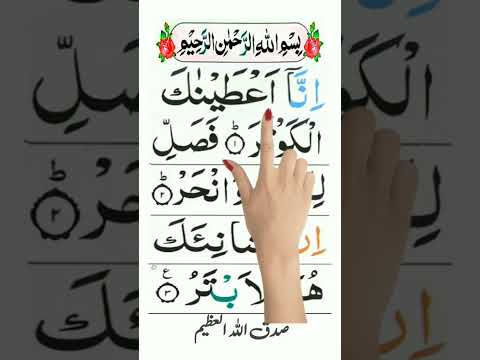 بِسْمِ اللهِ الرَّحْمٰنِ الرَّحِيْمِ
اِنَّاۤ اَعْطَيْنٰكَ
الْكَوْثَرَؕ ۝۱ فَصَلِّ
انْحَرْؕ ۝۲
شَانِئَكَ
تَرُ ۝۳ ع
صدق الله العظيم